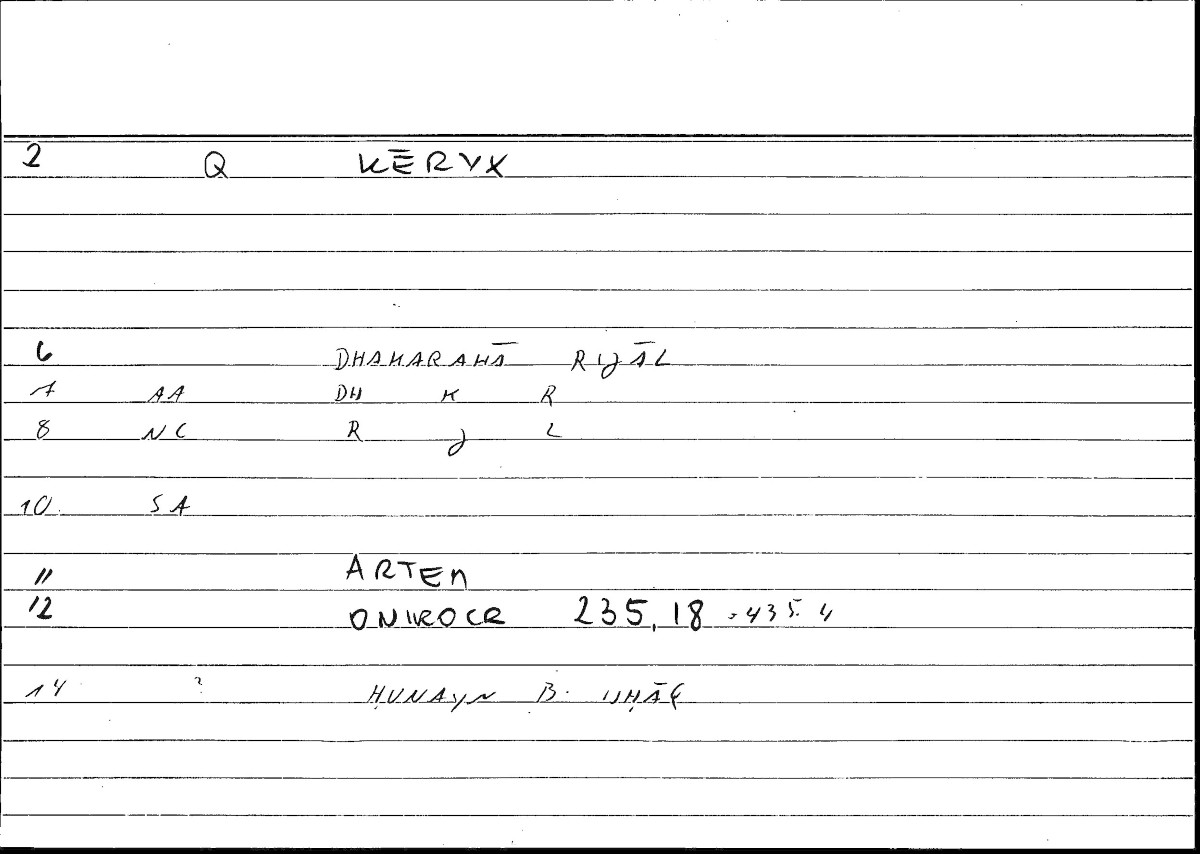 2 Q KĒRYX
6 DHAKARAHĀ RIJĀL
7 AA DH K R
8 NC R J L
10. SA
11 ARTEM
12 ONIROCR 235,18 - 435.4
14 ? ḤUNAYN B.